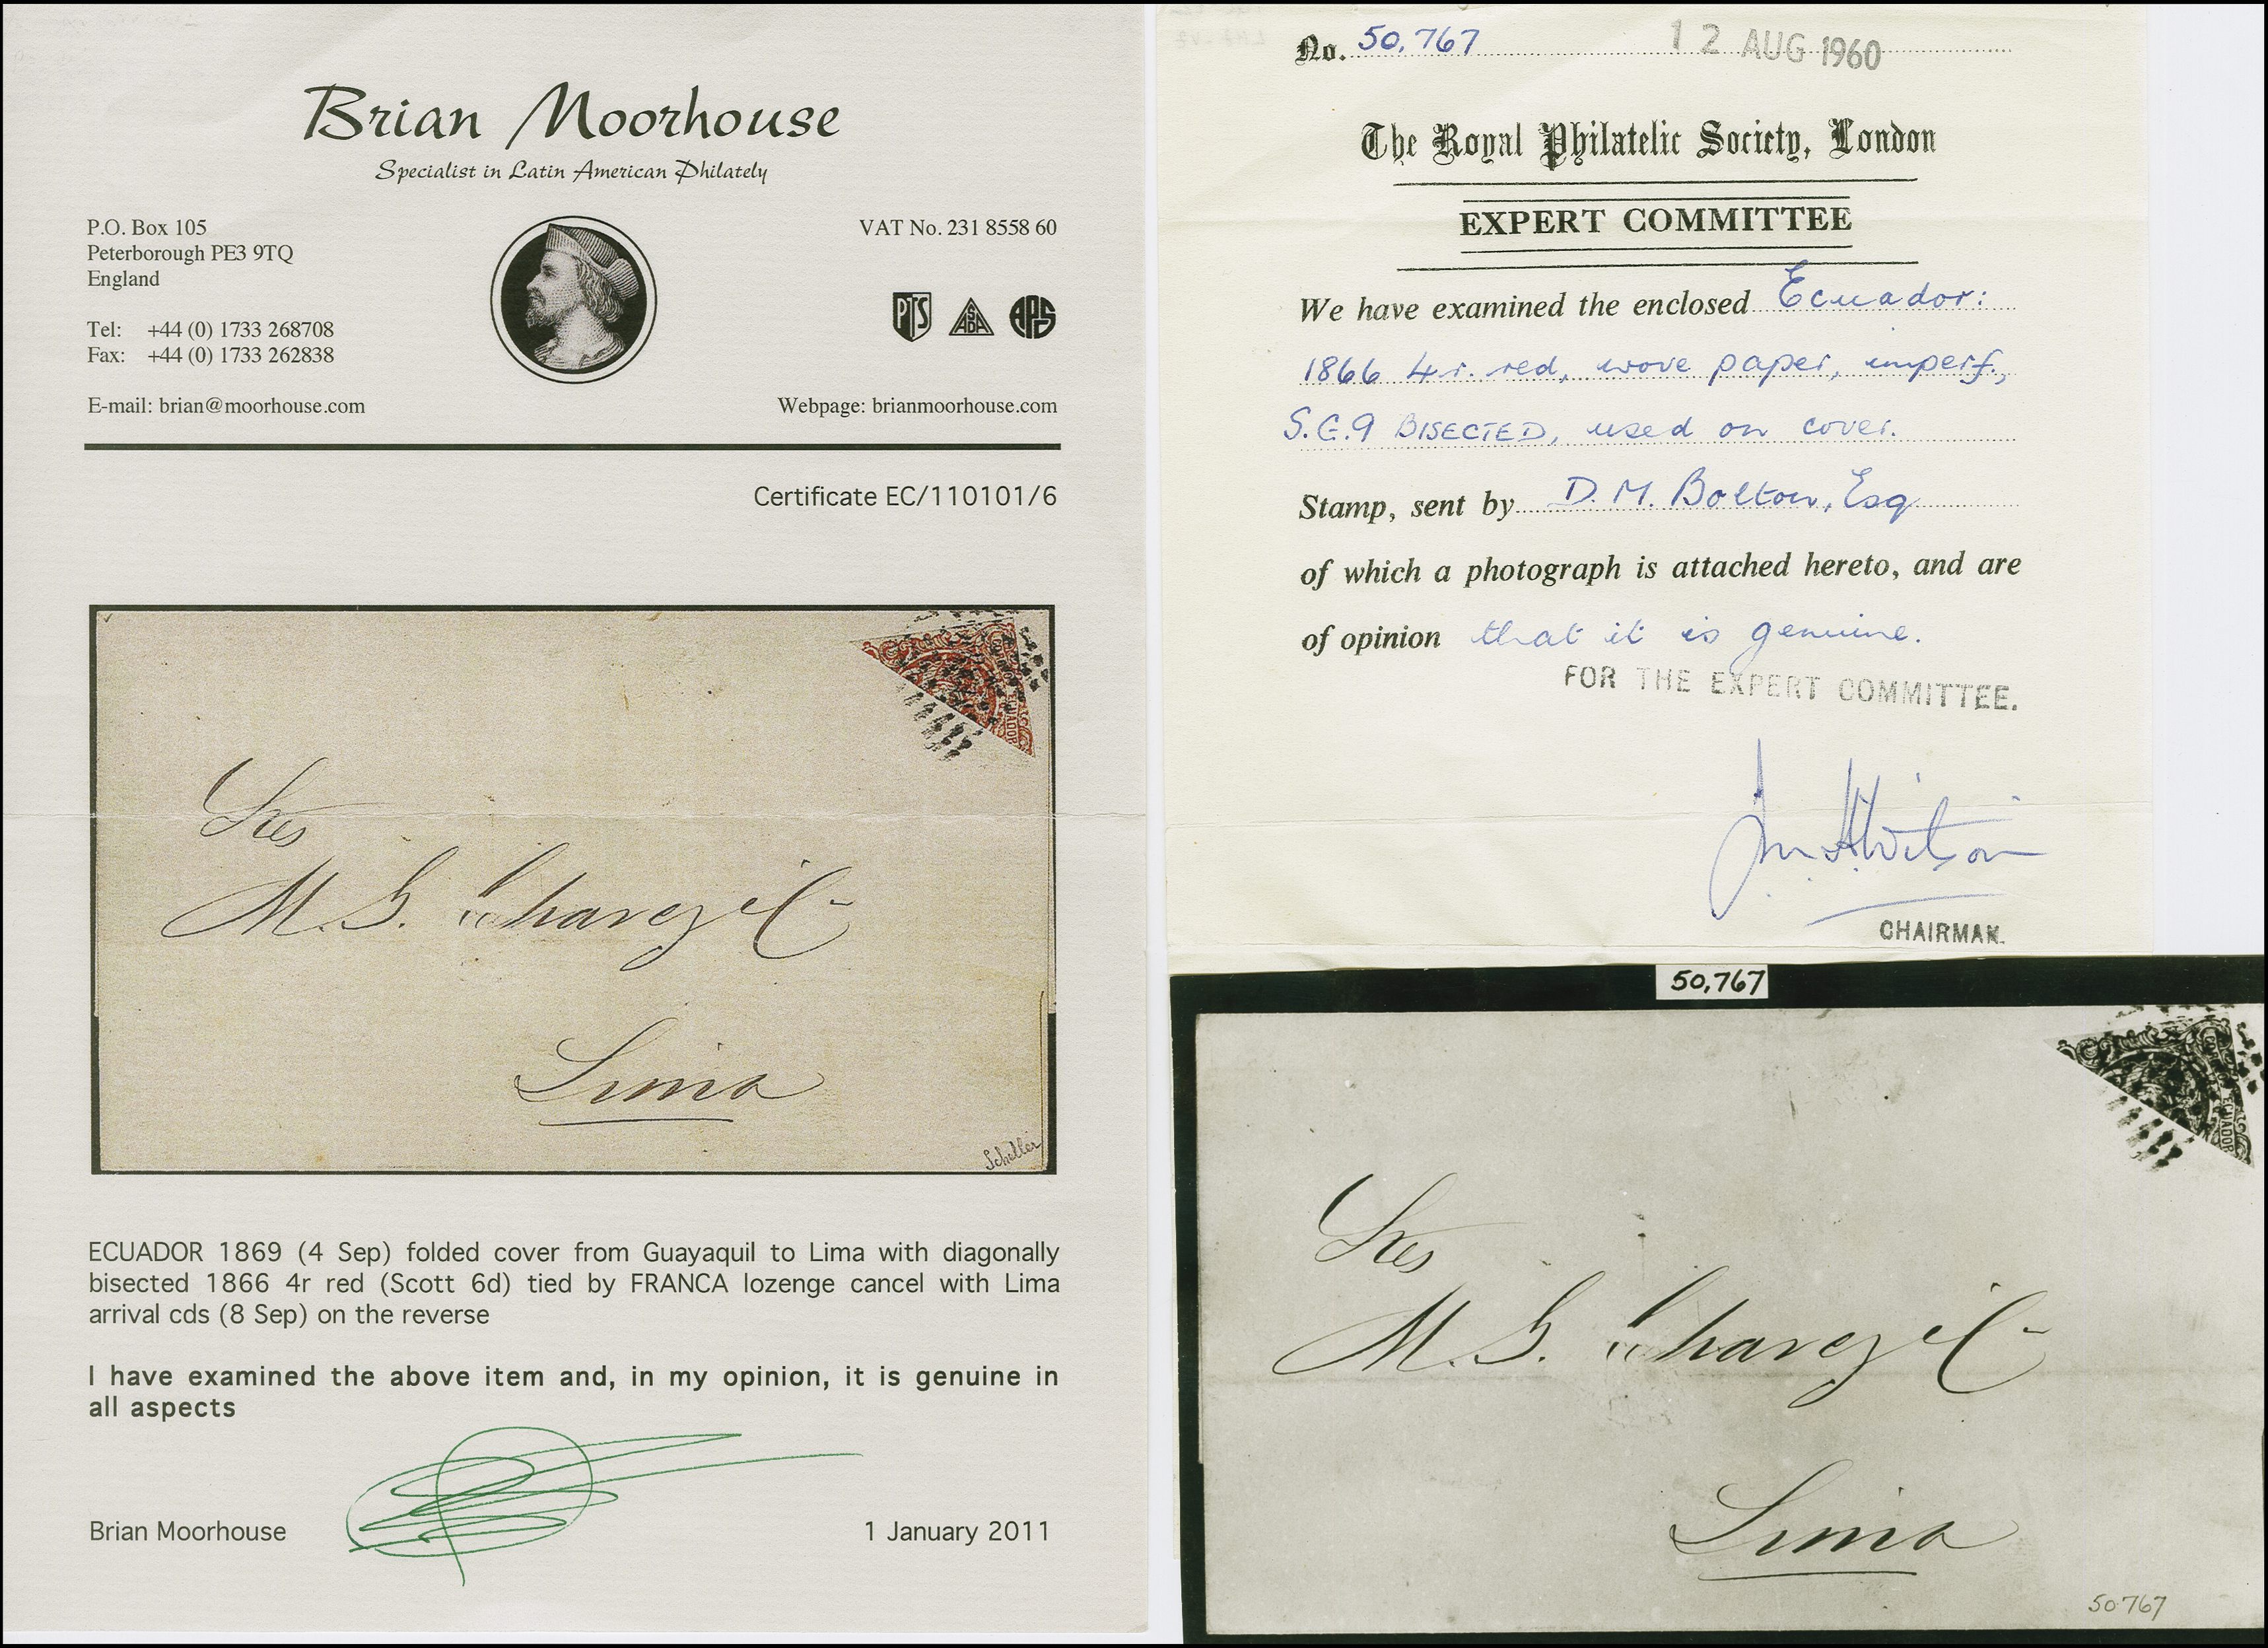 Brian Moorhouse
Specialist in Latin American Philately
P.O. Box 105
Peterborough PE3 9TQ
England
Tel: +44 (0) 1733 268708
Fax: +44 (0) 1733 262838
E-mail: brian@moorhouse.com
VAT No. 231 8558 60
PTS
ASDA
APS
Webpage: brianmoorhouse.com
Certificate EC/110101/6
ECUADOR
Sres
M. S. Chavez i C
Lima
Scheller
ECUADOR 1869 (4 Sep) folded cover from Guayaquil to Lima with diagonally
bisected 1866 4r red (Scott 6d) tied by FRANCA lozenge cancel with Lima
arrival cds (8 Sep) on the reverse
I have examined the above item and, in my opinion, it is genuine in
all aspects
Brian Moorhouse
1 January 2011
No. 50,767 12 AUG 1960
The Royal Philatelic Society, London
EXPERT COMMITTEE
We have examined the enclosed Ecuador:
1866 4r. red, wove paper, imperf.,
S.G.9 BISECTED, used on cover.
Stamp, sent by D. M. Bolton, Esq
of which a photograph is attached hereto, and are
of opinion that it is genuine.
FOR THE EXPERT COMMITTEE.
CHAIRMAN.
50,767
ECUADOR
Sres
M. S. Chavez i C
Lima
50767